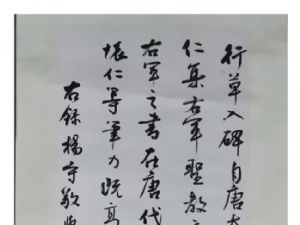 行草入碑自唐太
仁集右军圣教序
右军之书在唐代
怀仁等笔力既高
右录杨守敬